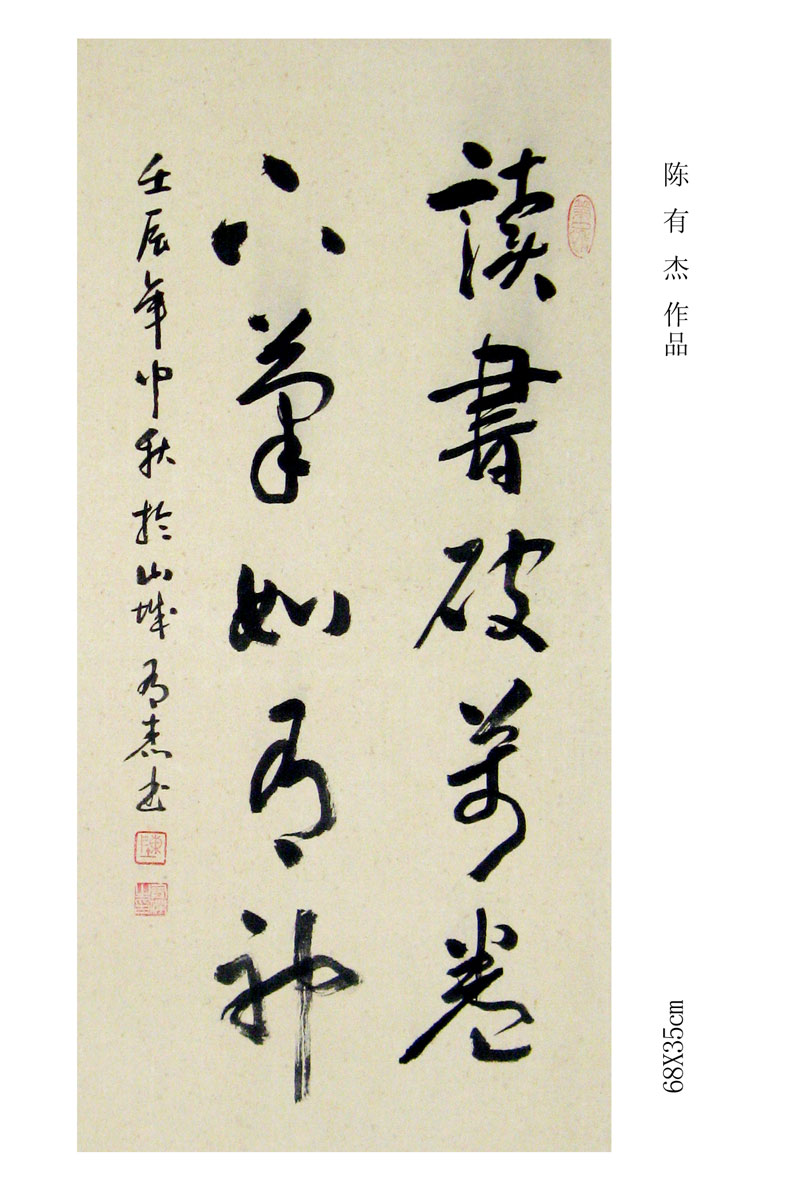 陈有杰作品
讀書破萬卷
下筆如有神
壬辰年中秋於山城有杰书
68X35cm